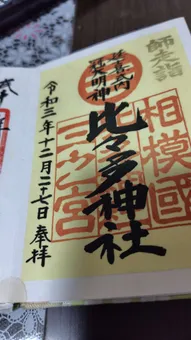 師走詣
延喜式内
冠大明神
相模國
三之宮
比々多神社
令和三年十二月二十七日 奉拝